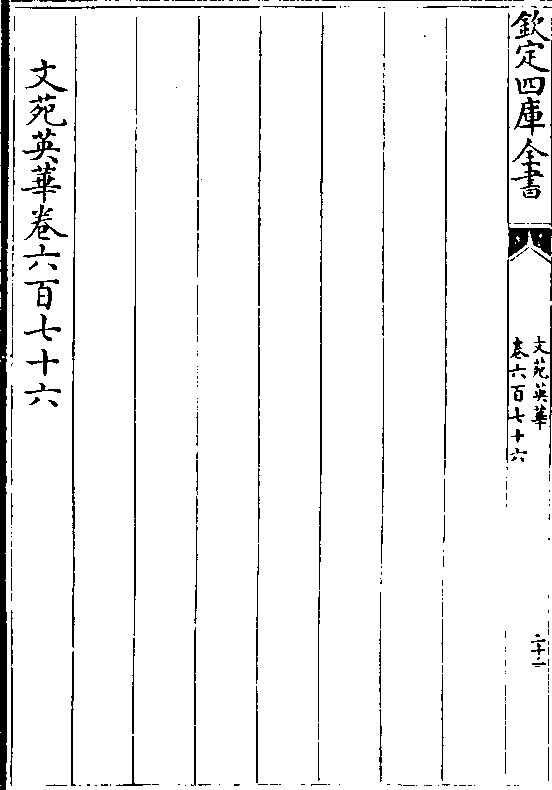 欽定四庫全書
文苑英華
卷六百七十六
二十二
文苑英華卷六百七十六